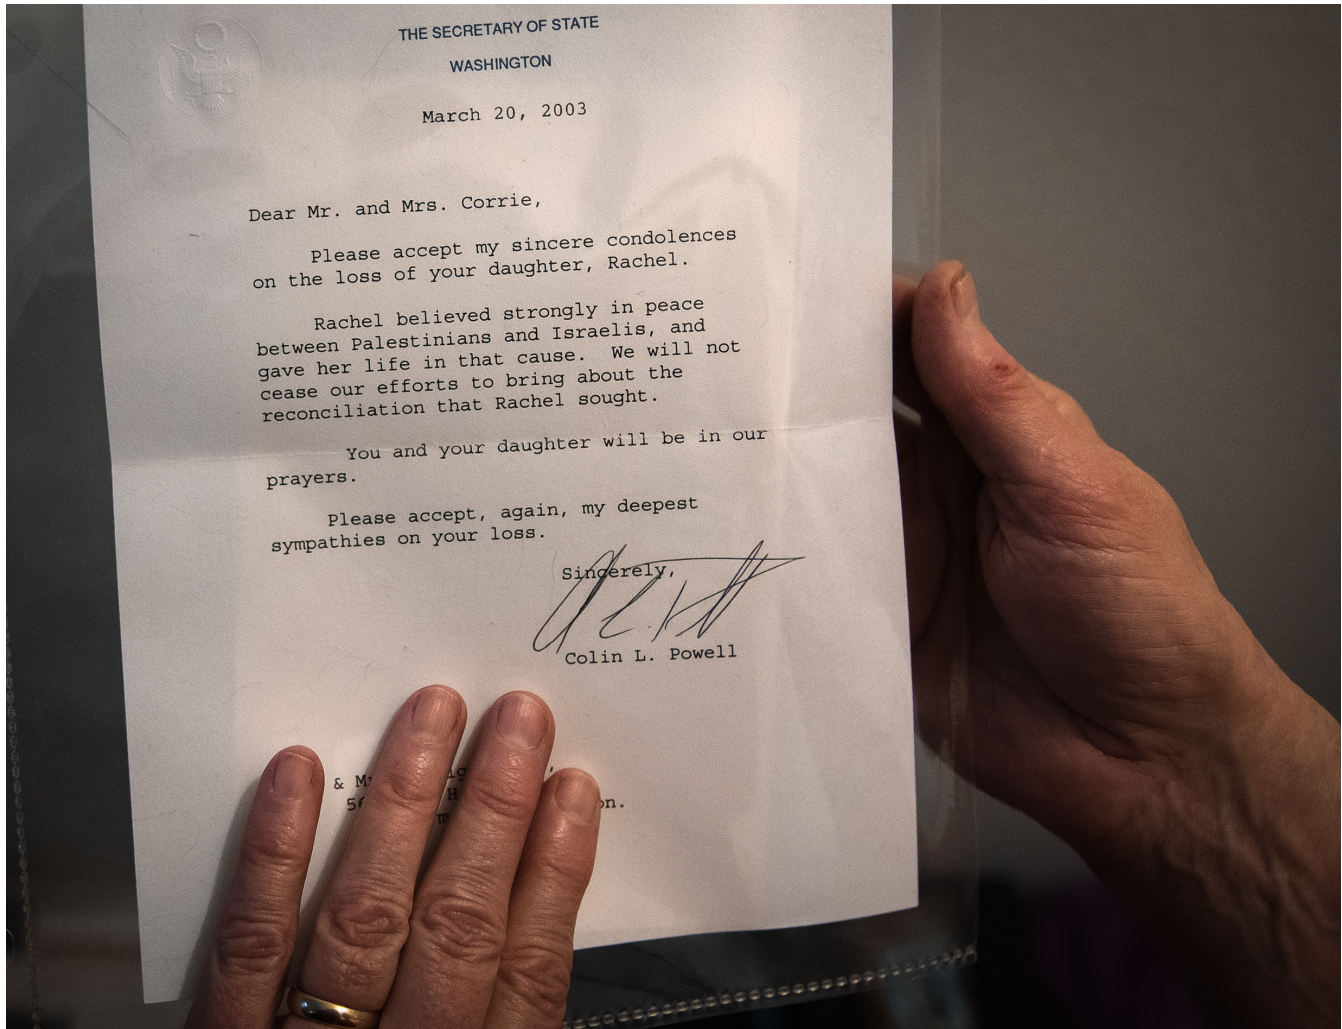 THE SECRETARY OF STATE
WASHINGTON
March 20, 2003
Dear Mr. and Mrs. Corrie,
Please accept my sincere condolences
on the loss of your daughter, Rachel.
Rachel believed strongly in peace
between Palestinians and Israelis, and
gave her life in that cause. We will not
cease our efforts to bring about the
reconciliation that Rachel sought.
You and your daughter will be in our
prayers.
Please accept, again, my deepest
sympathies on your loss.
Sincerely,
Colin L. Powell
&